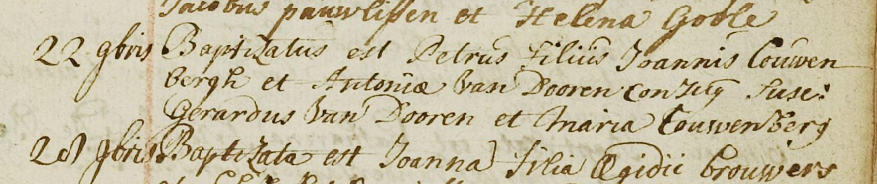 Jacobus pauwlissen et Helena Goole
22 9bris Baptizatus est Petrus filius Joannis Couwen
bergh et Antoniæ Van Dooren conjug susc:
Gerardus Van Dooren et Maria Couwenberg
28 9bris Baptizata est Joanna filia Ægidii brouwers